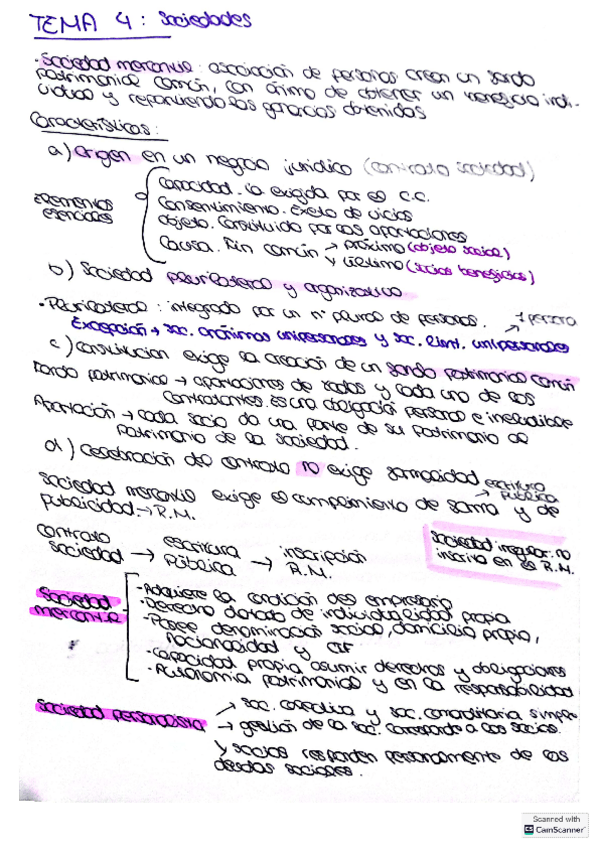 TEMA 4: Sociedades
· Sociedad mercantil: asociación de personas crean un fondo
patrimonial común, con ánimo de obtener un beneficio indi-
vidual y repartiendo las ganancias obtenidas
Características:
a) origen en un negocio jurídico (contrato sociedad)
elementos esenciales
Capacidad. la exigida por el C.C.
Consentimiento. Exento de vicios
objeto. Constituido por las aportaciones
Causa. Fin común → próximo (objeto social)
y último (socios beneficios)
b) Sociedad plurilateral y organizativa
· Plurilateral: integrado por un nº plural de personas.
→ 1 persona
Excepción → soc. anónimas unipersonales y soc. limit. unipersonales
c) constitución exige la creación de un fondo patrimonial común
Fondo patrimonial → aportaciones de todos y cada uno de los
contratantes. Es una obligación personal e ineludible
Aportación → cada socio da una parte de su patrimonio al
patrimonio de la sociedad.
d) Celebración del contrato no exige formalidad
→ escritura pública
Sociedad mercantil exige el cumplimiento de forma y de
publicidad → R.M.
contrato sociedad → escritura pública → inscripción R.M.
Sociedad irregular: no
inscrita en el R.M.
Sociedad mercantil
- Adquiere la condición de empresario
- Derecho dotado de individualidad propia
- Posee denominación social, domicilio propio,
nacionalidad y CIF
- Capacidad propia asumir derechos y obligaciones
- Autonomía patrimonial y en la responsabilidad
Sociedad personalista
→ soc. colectiva y soc. comanditaria simple
→ gestión de la soc. corresponde a los socios.
y socios responden personalmente de las
deudas sociales.
Scanned with
CamScanner